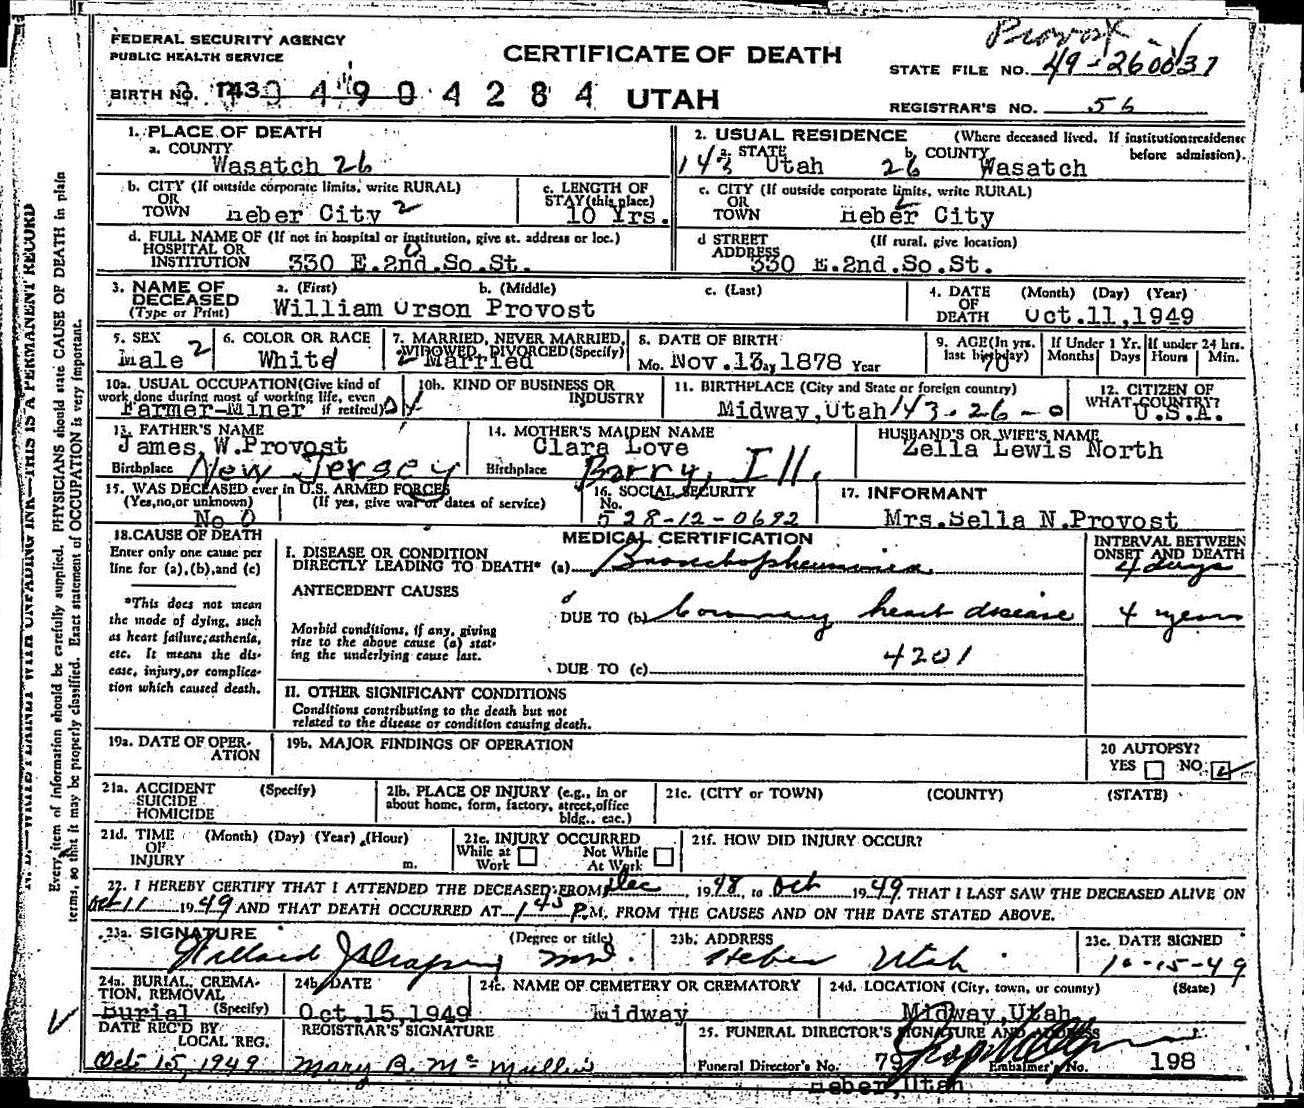 Provost
FEDERAL SECURITY AGENCY
PUBLIC HEALTH SERVICE
CERTIFICATE OF DEATH
STATE FILE NO. 49-260037
BIRTH NO. 143 04904284 UTAH
REGISTRAR'S NO. 56
1. PLACE OF DEATH
a. COUNTY
Wasatch 26
2. USUAL RESIDENCE (Where deceased lived. If institution: residence before admission).
143 a. STATE Utah 26 b. COUNTY Wasatch
b. CITY (If outside corporate limits, write RURAL)
OR
TOWN Heber City 2
c. LENGTH OF
STAY (this place)
10 Yrs.
c. CITY (If outside corporate limits, write RURAL)
OR
TOWN Heber City 2
d. FULL NAME OF (If not in hospital or institution, give st. address or loc.)
HOSPITAL OR
INSTITUTION 330 E.2nd.So.St.
d STREET (If rural, give location)
ADDRESS
330 E.2nd.So.St.
3. NAME OF DECEASED (Type or Print)
a. (First) b. (Middle) c. (Last)
William Orson Provost
4. DATE OF DEATH (Month) (Day) (Year)
Oct.11,1949
5. SEX
Male 2
6. COLOR OR RACE
White
7. MARRIED, NEVER MARRIED, WIDOWED, DIVORCED (Specify)
2 Married
8. DATE OF BIRTH
Mo. Nov.13, Day 1878 Year
9. AGE (In yrs. last birthday)
70
If Under 1 Yr. Months Days
If under 24 hrs. Hours Min.
10a. USUAL OCCUPATION (Give kind of work done during most of working life, even if retired)
Farmer-Miner
10b. KIND OF BUSINESS OR INDUSTRY
11. BIRTHPLACE (City and State or foreign country)
Midway,Utah 143-26-0
12. CITIZEN OF WHAT COUNTRY?
U.S.A.
13. FATHER'S NAME
James W.Provost
Birthplace New Jersey
14. MOTHER'S MAIDEN NAME
Clara Love
Birthplace Barry, Ill.
HUSBAND'S OR WIFE'S NAME
Zella Lewis North
15. WAS DECEASED ever in U.S. ARMED FORCES
(Yes, no, or unknown) (If yes, give war or dates of service)
No 0
16. SOCIAL SECURITY No.
528-12-0692
17. INFORMANT
Mrs.Sella N.Provost
18. CAUSE OF DEATH
Enter only one cause per line for (a), (b), and (c)
*This does not mean the mode of dying, such as heart failure, asthenia, etc. It means the disease, injury, or complication which caused death.
MEDICAL CERTIFICATION
INTERVAL BETWEEN ONSET AND DEATH
I. DISEASE OR CONDITION
DIRECTLY LEADING TO DEATH* (a) Bronchopneumonia 4 days
ANTECEDENT CAUSES
DUE TO (b) Coronary heart disease 4 years
Morbid conditions, if any, giving rise to the above cause (a) stating the underlying cause last.
4201
DUE TO (c)
II. OTHER SIGNIFICANT CONDITIONS
Conditions contributing to the death but not
related to the disease or condition causing death.
19a. DATE OF OPERATION
19b. MAJOR FINDINGS OF OPERATION
20 AUTOPSY?
YES NO
21a. ACCIDENT SUICIDE HOMICIDE (Specify)
21b. PLACE OF INJURY (e.g., in or about home, form, factory, street, office bldg., etc.)
21c. (CITY or TOWN) (COUNTY) (STATE)
21d. TIME OF INJURY (Month) (Day) (Year) (Hour) m.
21e. INJURY OCCURRED
While at Work Not While At Work
21f. HOW DID INJURY OCCUR?
22. I HEREBY CERTIFY THAT I ATTENDED THE DECEASED FROM Dec 1948, to Oct 1949, THAT I LAST SAW THE DECEASED ALIVE ON
Oct 11 1949 AND THAT DEATH OCCURRED AT 1 45 P.M. FROM THE CAUSES AND ON THE DATE STATED ABOVE.
23a. SIGNATURE (Degree or title)
Willard M.D.
23b. ADDRESS
Heber Utah
23c. DATE SIGNED
10-15-49
24a. BURIAL, CREMATION, REMOVAL (Specify)
Burial
24b. DATE
Oct.15,1949
24c. NAME OF CEMETERY OR CREMATORY
Midway
24d. LOCATION (City, town, or county) (State)
Midway,Utah
DATE REC'D BY LOCAL REG.
Oct 15, 1949
REGISTRAR'S SIGNATURE
Mary B. McMullin
25. FUNERAL DIRECTOR'S SIGNATURE AND ADDRESS
Funeral Director's No. 79 Embalmer's No. 198
Heber,Utah
Every item of information should be carefully supplied. PHYSICIANS should state CAUSE OF DEATH in plain
terms, so that it may be properly classified. Exact statement of OCCUPATION is very important.
THIS IS A PERMANENT RECORD